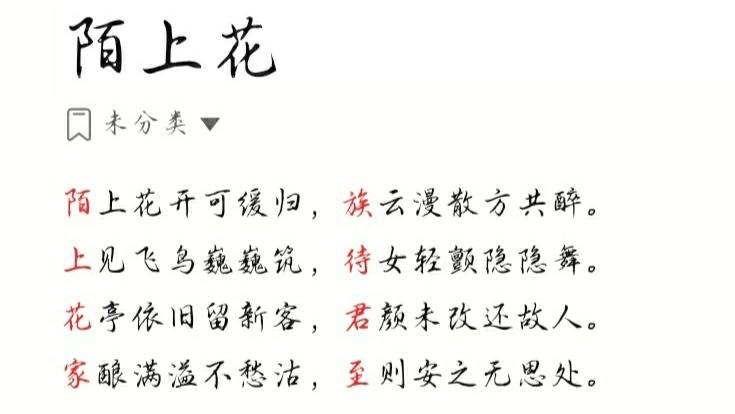 陌上花
未分类
陌上花开可缓归，族云漫散方共醉。
上见飞鸟巍巍筑，待女轻颤隐隐舞。
花亭依旧留新客，君颜未改还故人。
家酿满溢不愁沽，至则安之无思处。